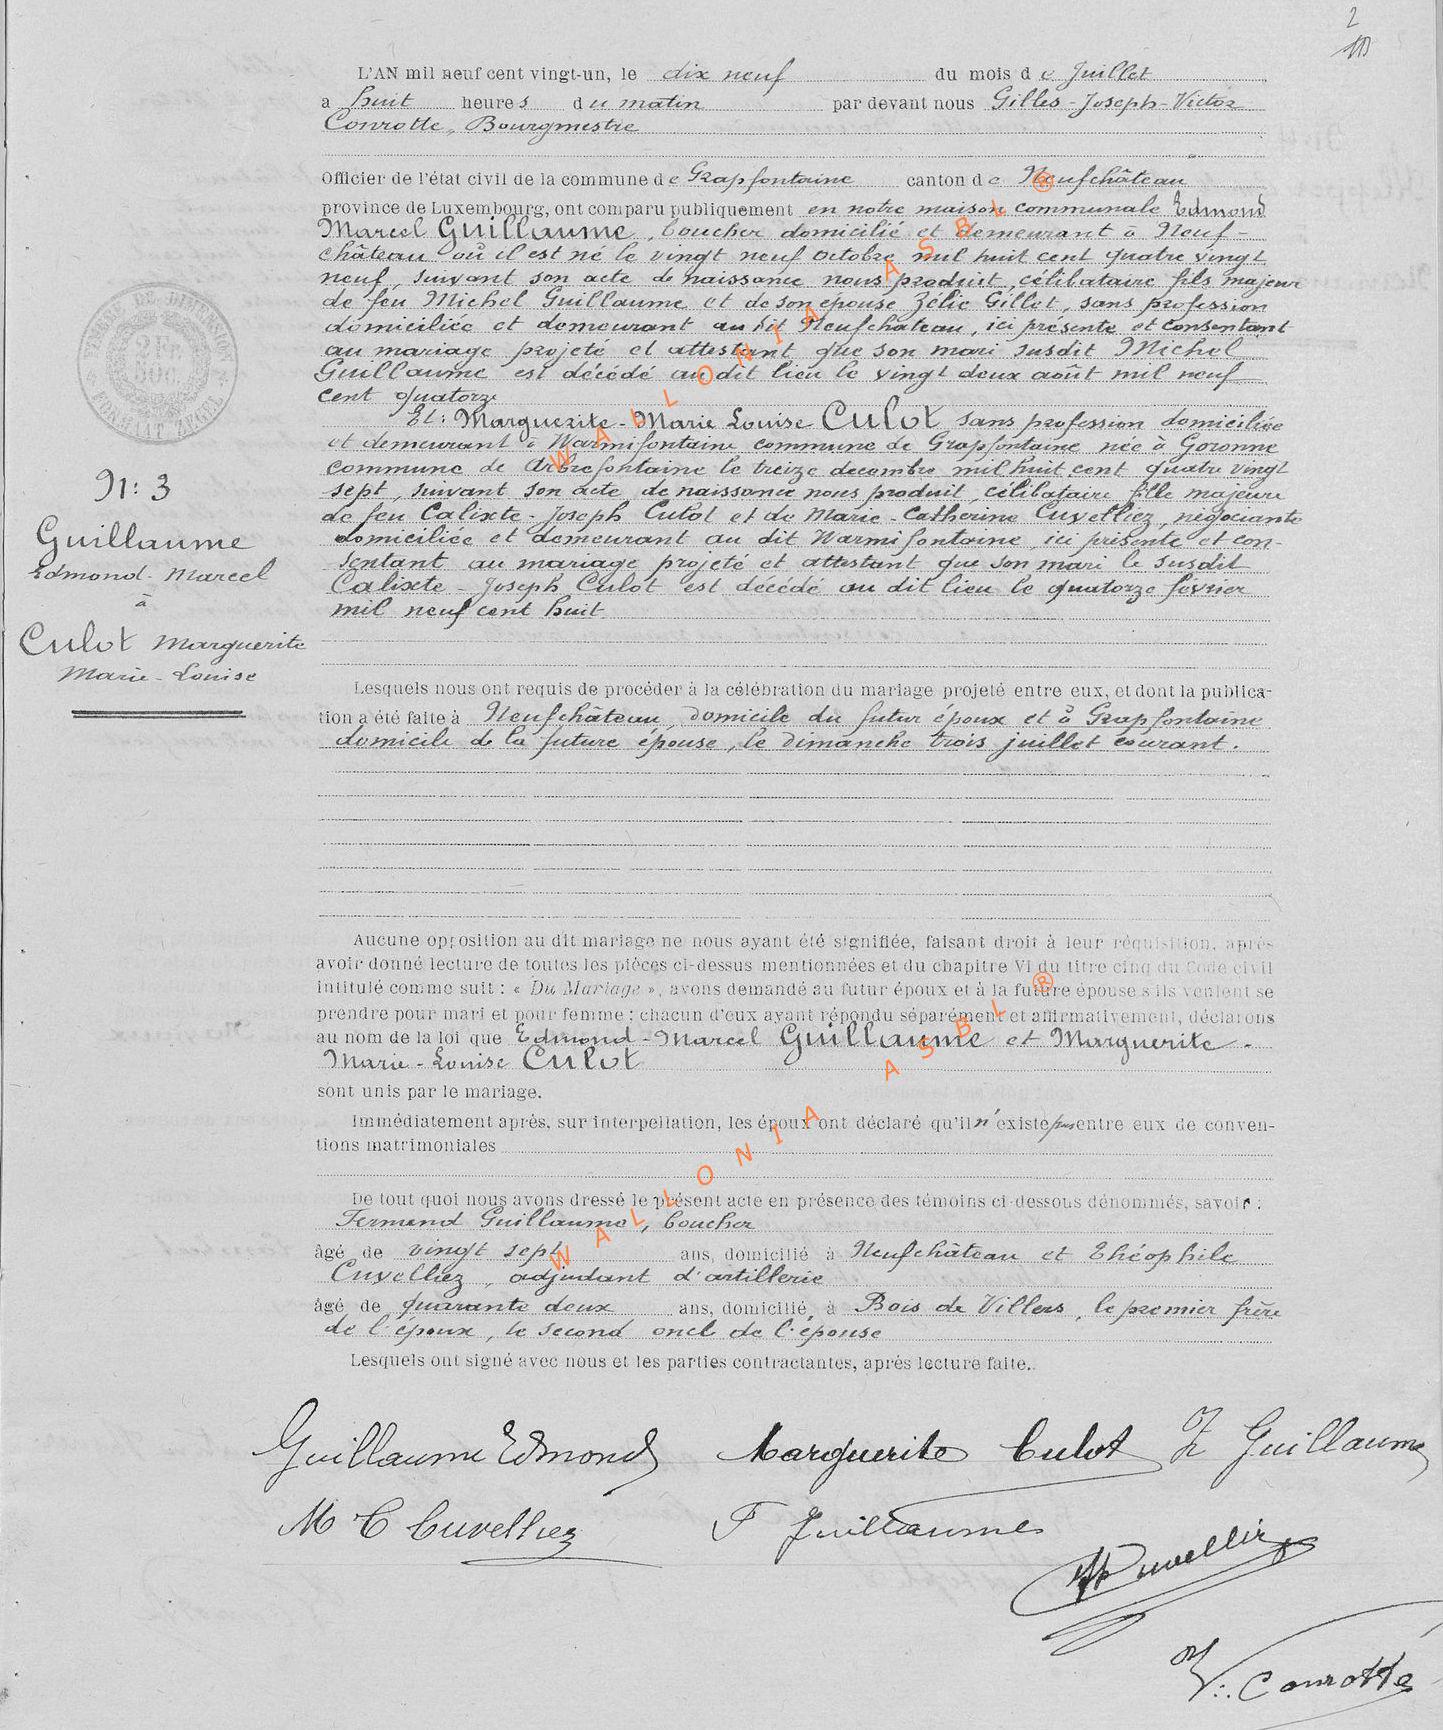 2
L'AN mil neuf cent vingt-un, le dix neuf du mois de Juillet
a huit heures du matin par devant nous Gilles-Joseph-Victor
Conrotte, Bourgmestre
Officier de l'état civil de la commune de Grapfontaine canton de Neufchâteau
province de Luxembourg, ont comparu publiquement en notre maison communale Edmond
Marcel Guillaume, boucher domicilié et demeurant à Neuf-
château où il est né le vingt neuf octobre mil huit cent quatre vingt
neuf, suivant son acte de naissance nous produit, célibataire fils majeur
de feu Michel Guillaume et de son épouse Zélie Gillet, sans profession
domiciliée et demeurant au dit Neufchâteau, ici présente et consentant
au mariage projeté et attestant que son mari susdit Michel
Guillaume est décédé au dit lieu le vingt deux août mil neuf
cent quatorze
Et: Marguerite-Marie Louise Culot sans profession domiciliée
et demeurant à Warmifontaine commune de Grapfontaine née à Goronne
commune de Arbrefontaine le treize decembre mil huit cent quatre vingt
sept, suivant son acte de naissance nous produit, célibataire fille majeure
de feu Calixte-Joseph Culot et de Marie-Catherine Cuvelliez, négociante
domiciliée et demeurant au dit Warmifontaine, ici présente et con-
sentant au mariage projeté et attestant que son mari le susdit
Calixte-Joseph Culot est décédé au dit lieu le quatorze février
mil neuf cent huit
N: 3
Guillaume
Edmond-Marcel
à
Culot Marguerite
Marie-Louise
Lesquels nous ont requis de procéder à la célébration du mariage projeté entre eux, et dont la publica-
tion a été faite à Neufchâteau, domicile du futur époux et à Grapfontaine
domicile de la future épouse, le dimanche trois juillet courant.
Aucune opposition au dit mariage ne nous ayant été signifiée, faisant droit à leur réquisition, après
avoir donné lecture de toutes les pièces ci-dessus mentionnées et du chapitre VI du titre cinq du Code civil
intitulé comme suit : « Du Mariage », avons demandé au futur époux et à la future épouse s'ils veulent se
prendre pour mari et pour femme ; chacun d'eux ayant répondu séparément et affirmativement, déclarons
au nom de la loi que Edmond-Marcel Guillaume et Marguerite-
Marie-Louise Culot
sont unis par le mariage.
Immédiatement après, sur interpellation, les époux ont déclaré qu'il n'existe pas entre eux de conven-
tions matrimoniales
De tout quoi nous avons dressé le présent acte en présence des témoins ci-dessous dénommés, savoir :
Fernand Guillaume, boucher
âgé de vingt sept ans, domicilié à Neufchâteau et Théophile
Cuvelliez, adjudant d'artillerie
âgé de quarante deux ans, domicilié à Bois de Villers, le premier frère
de l'époux, le second oncle de l'épouse
Lesquels ont signé avec nous et les parties contractantes, après lecture faite.
Guillaume Edmond Marguerite Culot Z Guillaume
M C Cuvelliez F Guillaume
Cuvelliez
V: Conrotte
WALLONIA ASBL ®
WALLONIA ASBL ®